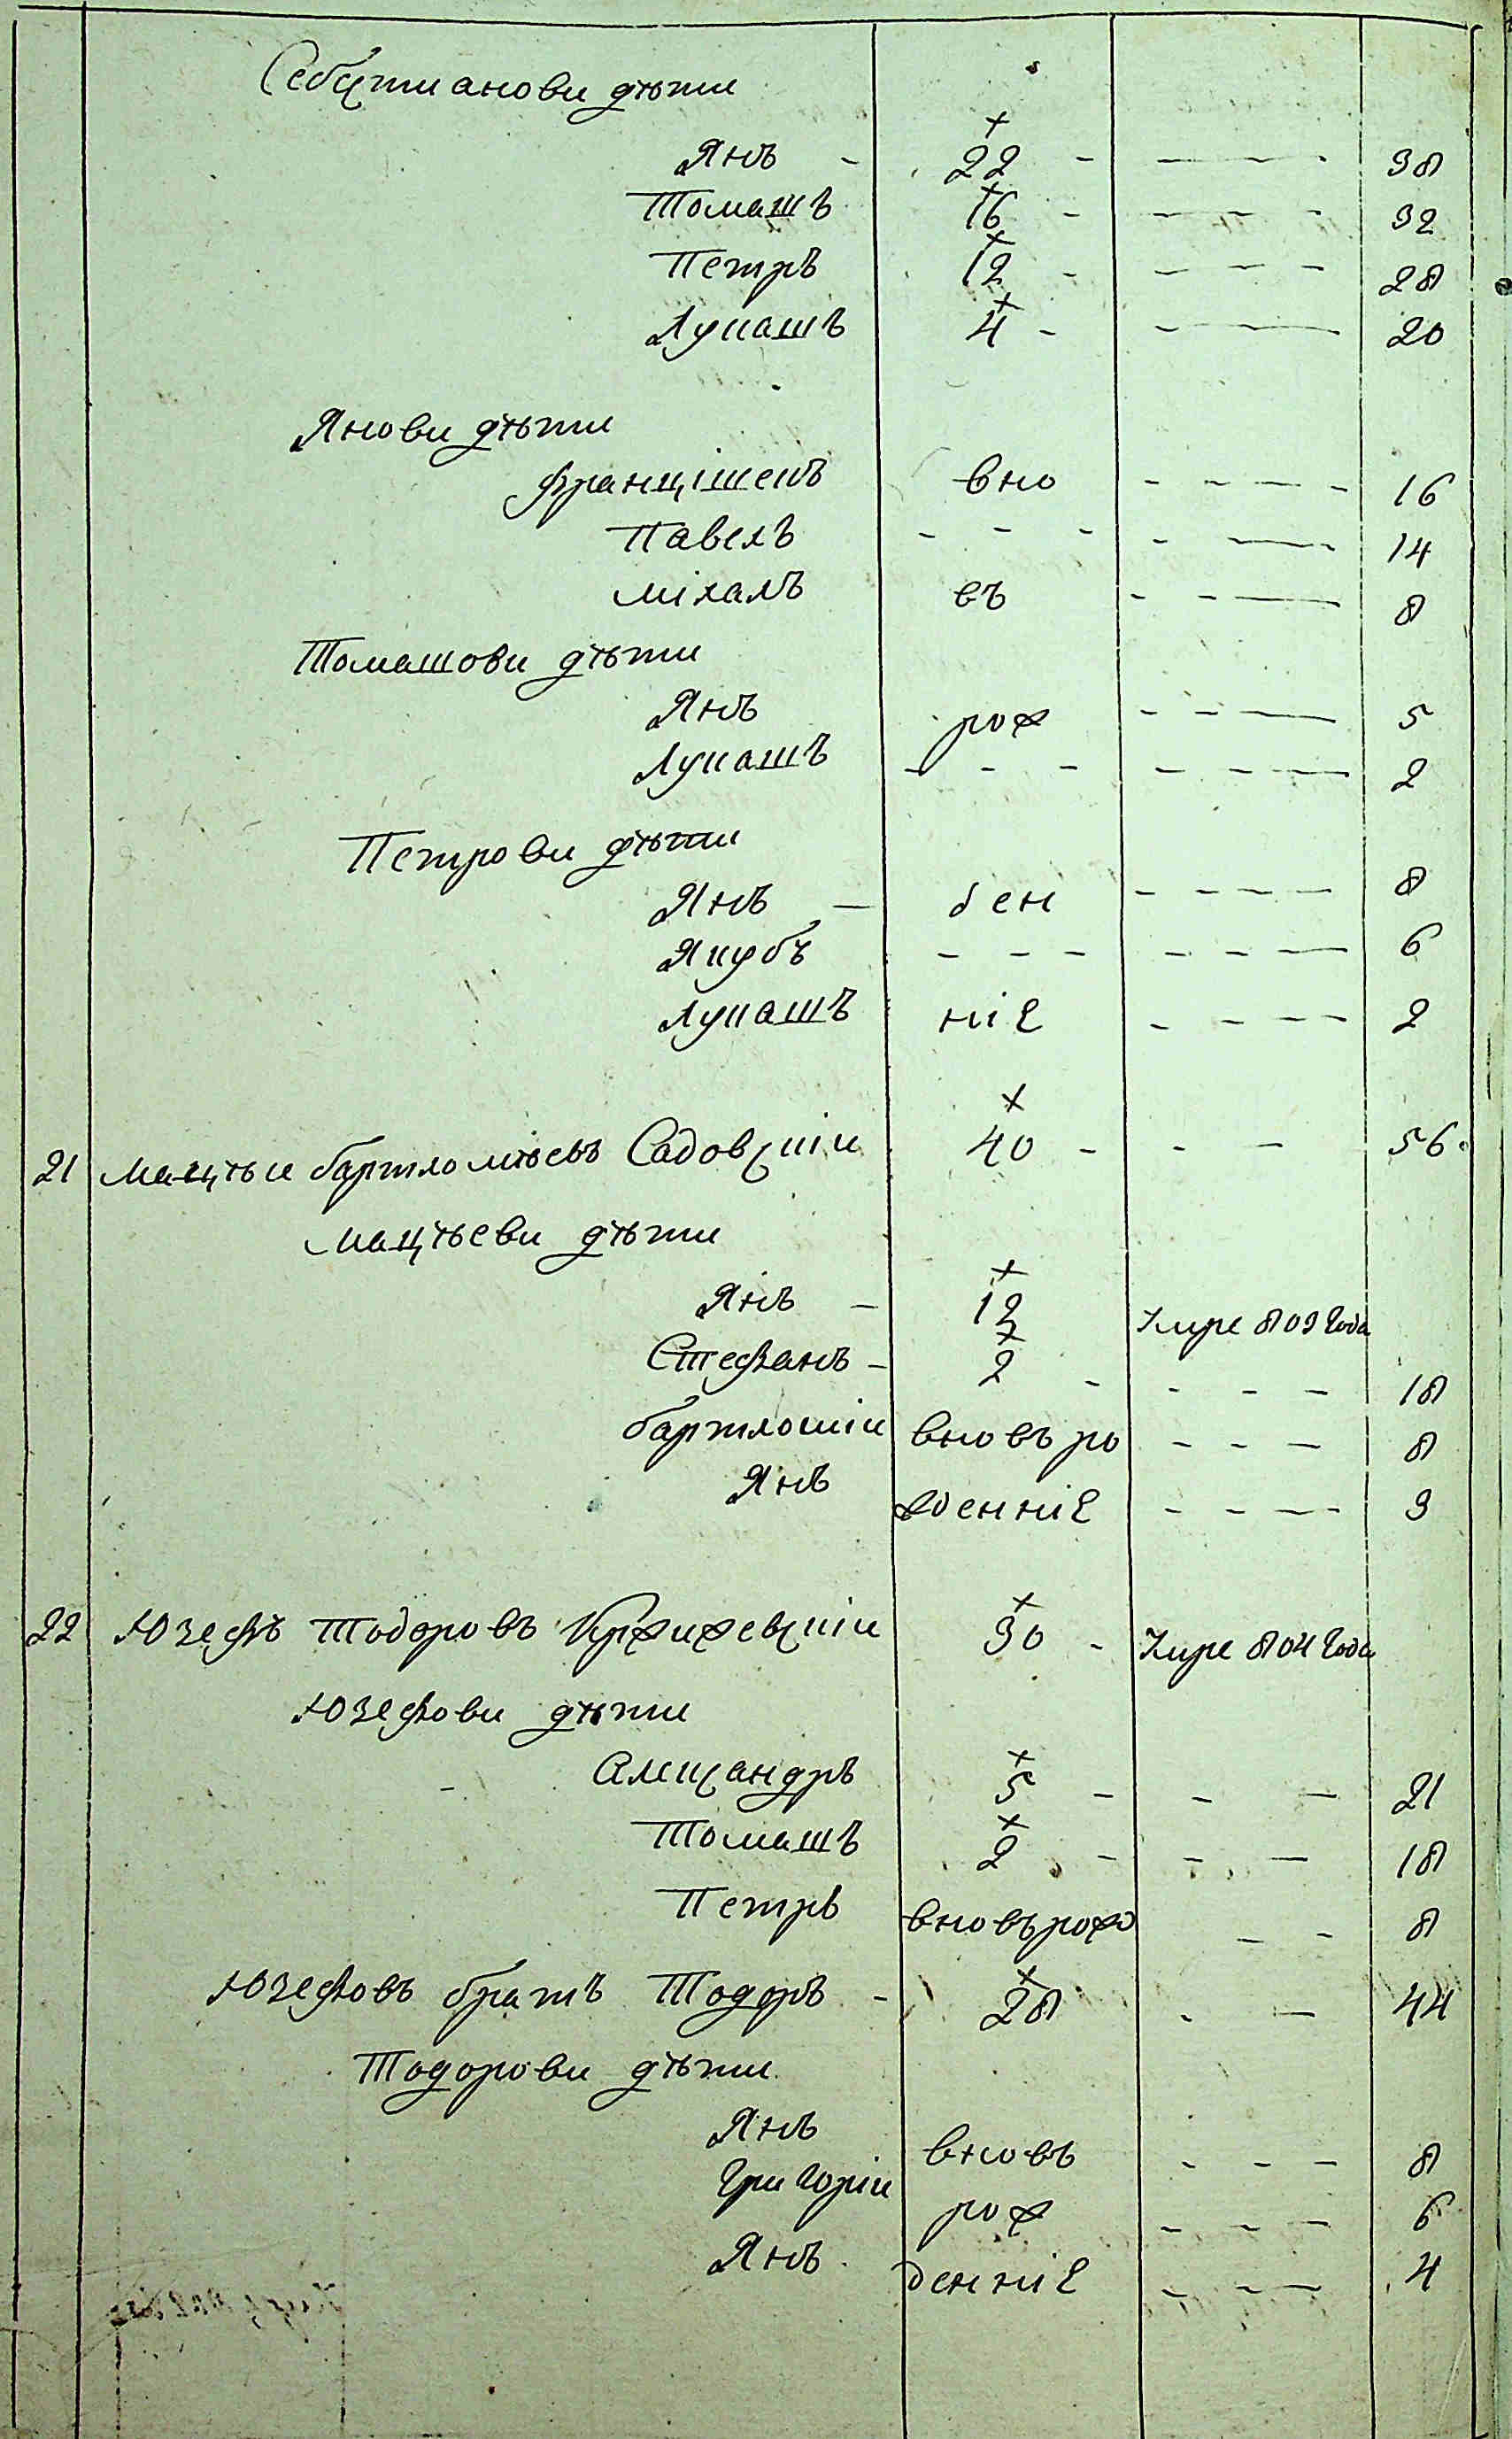 Себастианови дѣти
Янъ - 22 - - - - 38
Томашъ 16 - - - - 32
Петръ 12 - - - - 28
Лукашъ 4 - - - 20
Янови дѣти
Францішекъ вно - - - - 16
Павелъ - - - - - 14
Міхалъ въ - - - 8
Томашови дѣти
Янъ рож - - - 5
Лукашъ - - - - - - 2
Петрови дѣти
Янъ - ден - - - - 8
Якубъ - - - - - - - 6
Лукашъ ніе - - - - 2
21 Мацѣи Бартломѣевъ Садовскіи 40 - - - 56
Мацѣеви дѣти
Янъ - 12 Умре 809 года
Стефанъ - 2 - - - - 18
Бартломіи вновъ ро - - - 8
Янъ жденніе - - - - 3
22 Юзефъ Тодоровъ Кржижевскіи 30 - Умре 804 года
Юзефови дѣти
Александръ 5 - - - 21
Томашъ 2 - - - 18
Петръ вновъ рожд - - 8
Юзефовъ братъ Тодоръ - 28 - - 44
Тодорови дѣти
Янъ вновъ - - - 8
Григоріи рож - - - 6
Янъ денніе - - - 4